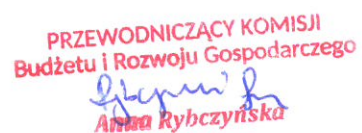 PRZEWODNICZĄCY KOMISJI
Budżetu i Rozwoju Gospodarczego
Anna Rybczyńska